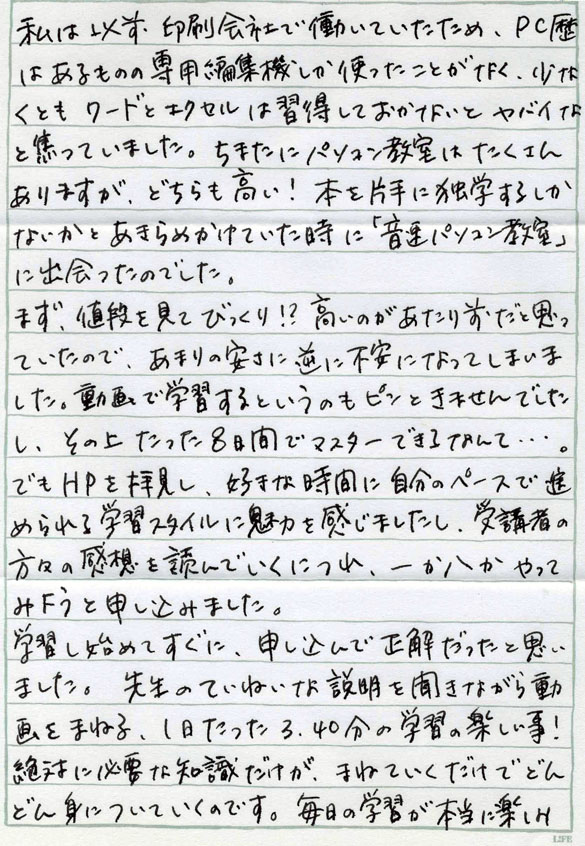 私は以前 印刷会社で働いていたため、PC歴
はあるものの専用編集機しか使ったことがなく、少な
くとも ワードとエクセルは習得しておかないと ヤバイな
と焦っていました。ちまたにパソコン教室は たくさん
ありますが、どちらも高い！ 本を片手に独学するしか
ないかと あきらめかけていた時に「音速パソコン教室」
に出会ったのでした。
まず、値段を見て びっくり!? 高いのがあたり前だと思っ
ていたので、あまりの安さに逆に不安になってしまいま
した。動画で学習するというのもピンときませんでした
し、その上 たった8日間でマスターできるなんて・・・。
でもHPを拝見し、好きな時間に自分のペースで進
められる学習スタイルに魅力を感じましたし、受講者の
方々の感想を読んでいくにつれ、一か八か やって
みようと申し込みました。
学習し始めてすぐに、申し込んで正解だったと思い
ました。先生のていねいな説明を聞きながら動
画をまねる、1日たった3.40分の学習の楽しい事！
絶対に必要な知識だけが、まねていくだけでどん
どん身についていくのです。毎日の学習が本当に楽しみ
LIFE